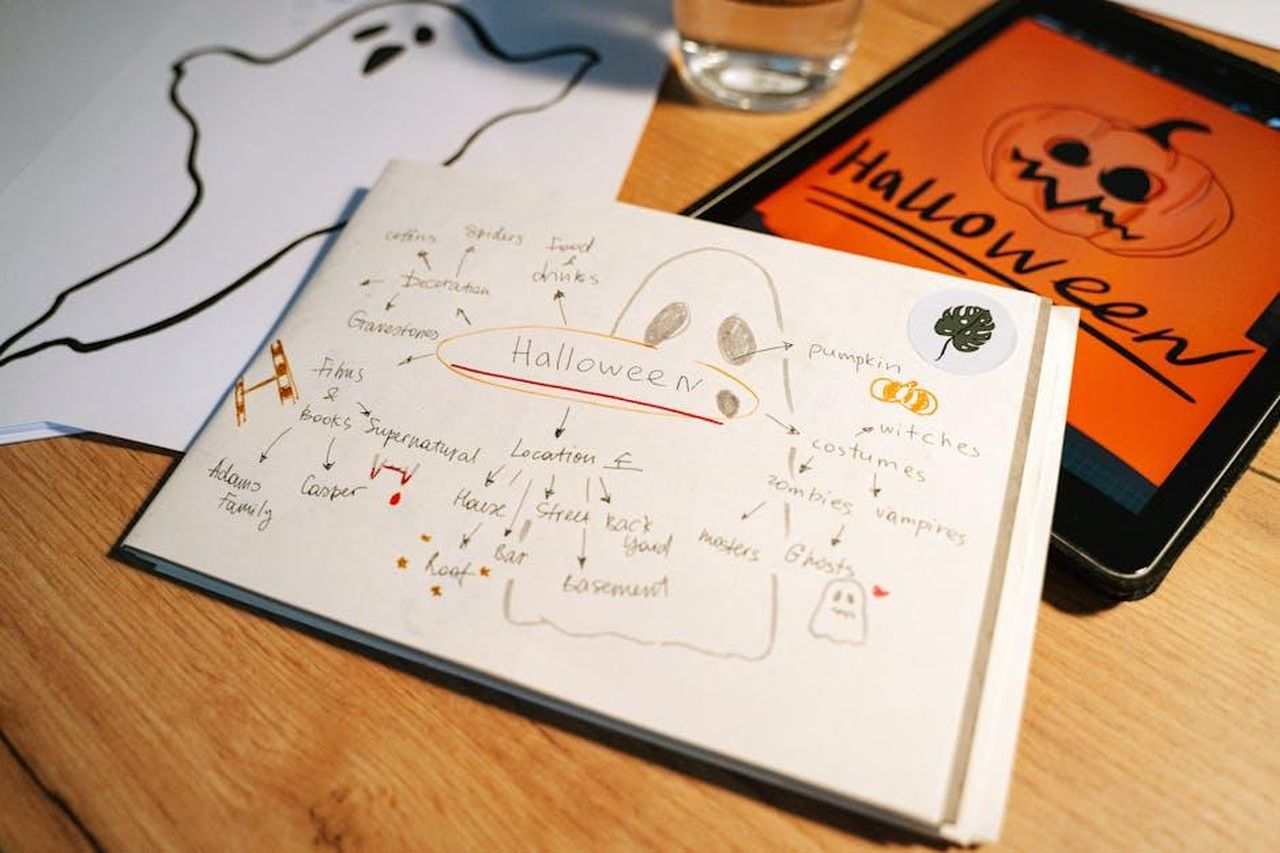 Halloween
coffins
Spiders
Food
&
drinks
Decoration
Gravestones
Halloween
pumpkin
Films
&
Books
Supernatural
Adams
Family
Casper
Location
costumes
witches
House
Street
Back
Yard
zombies
vampires
Roof
Bar
Basement
Ghosts